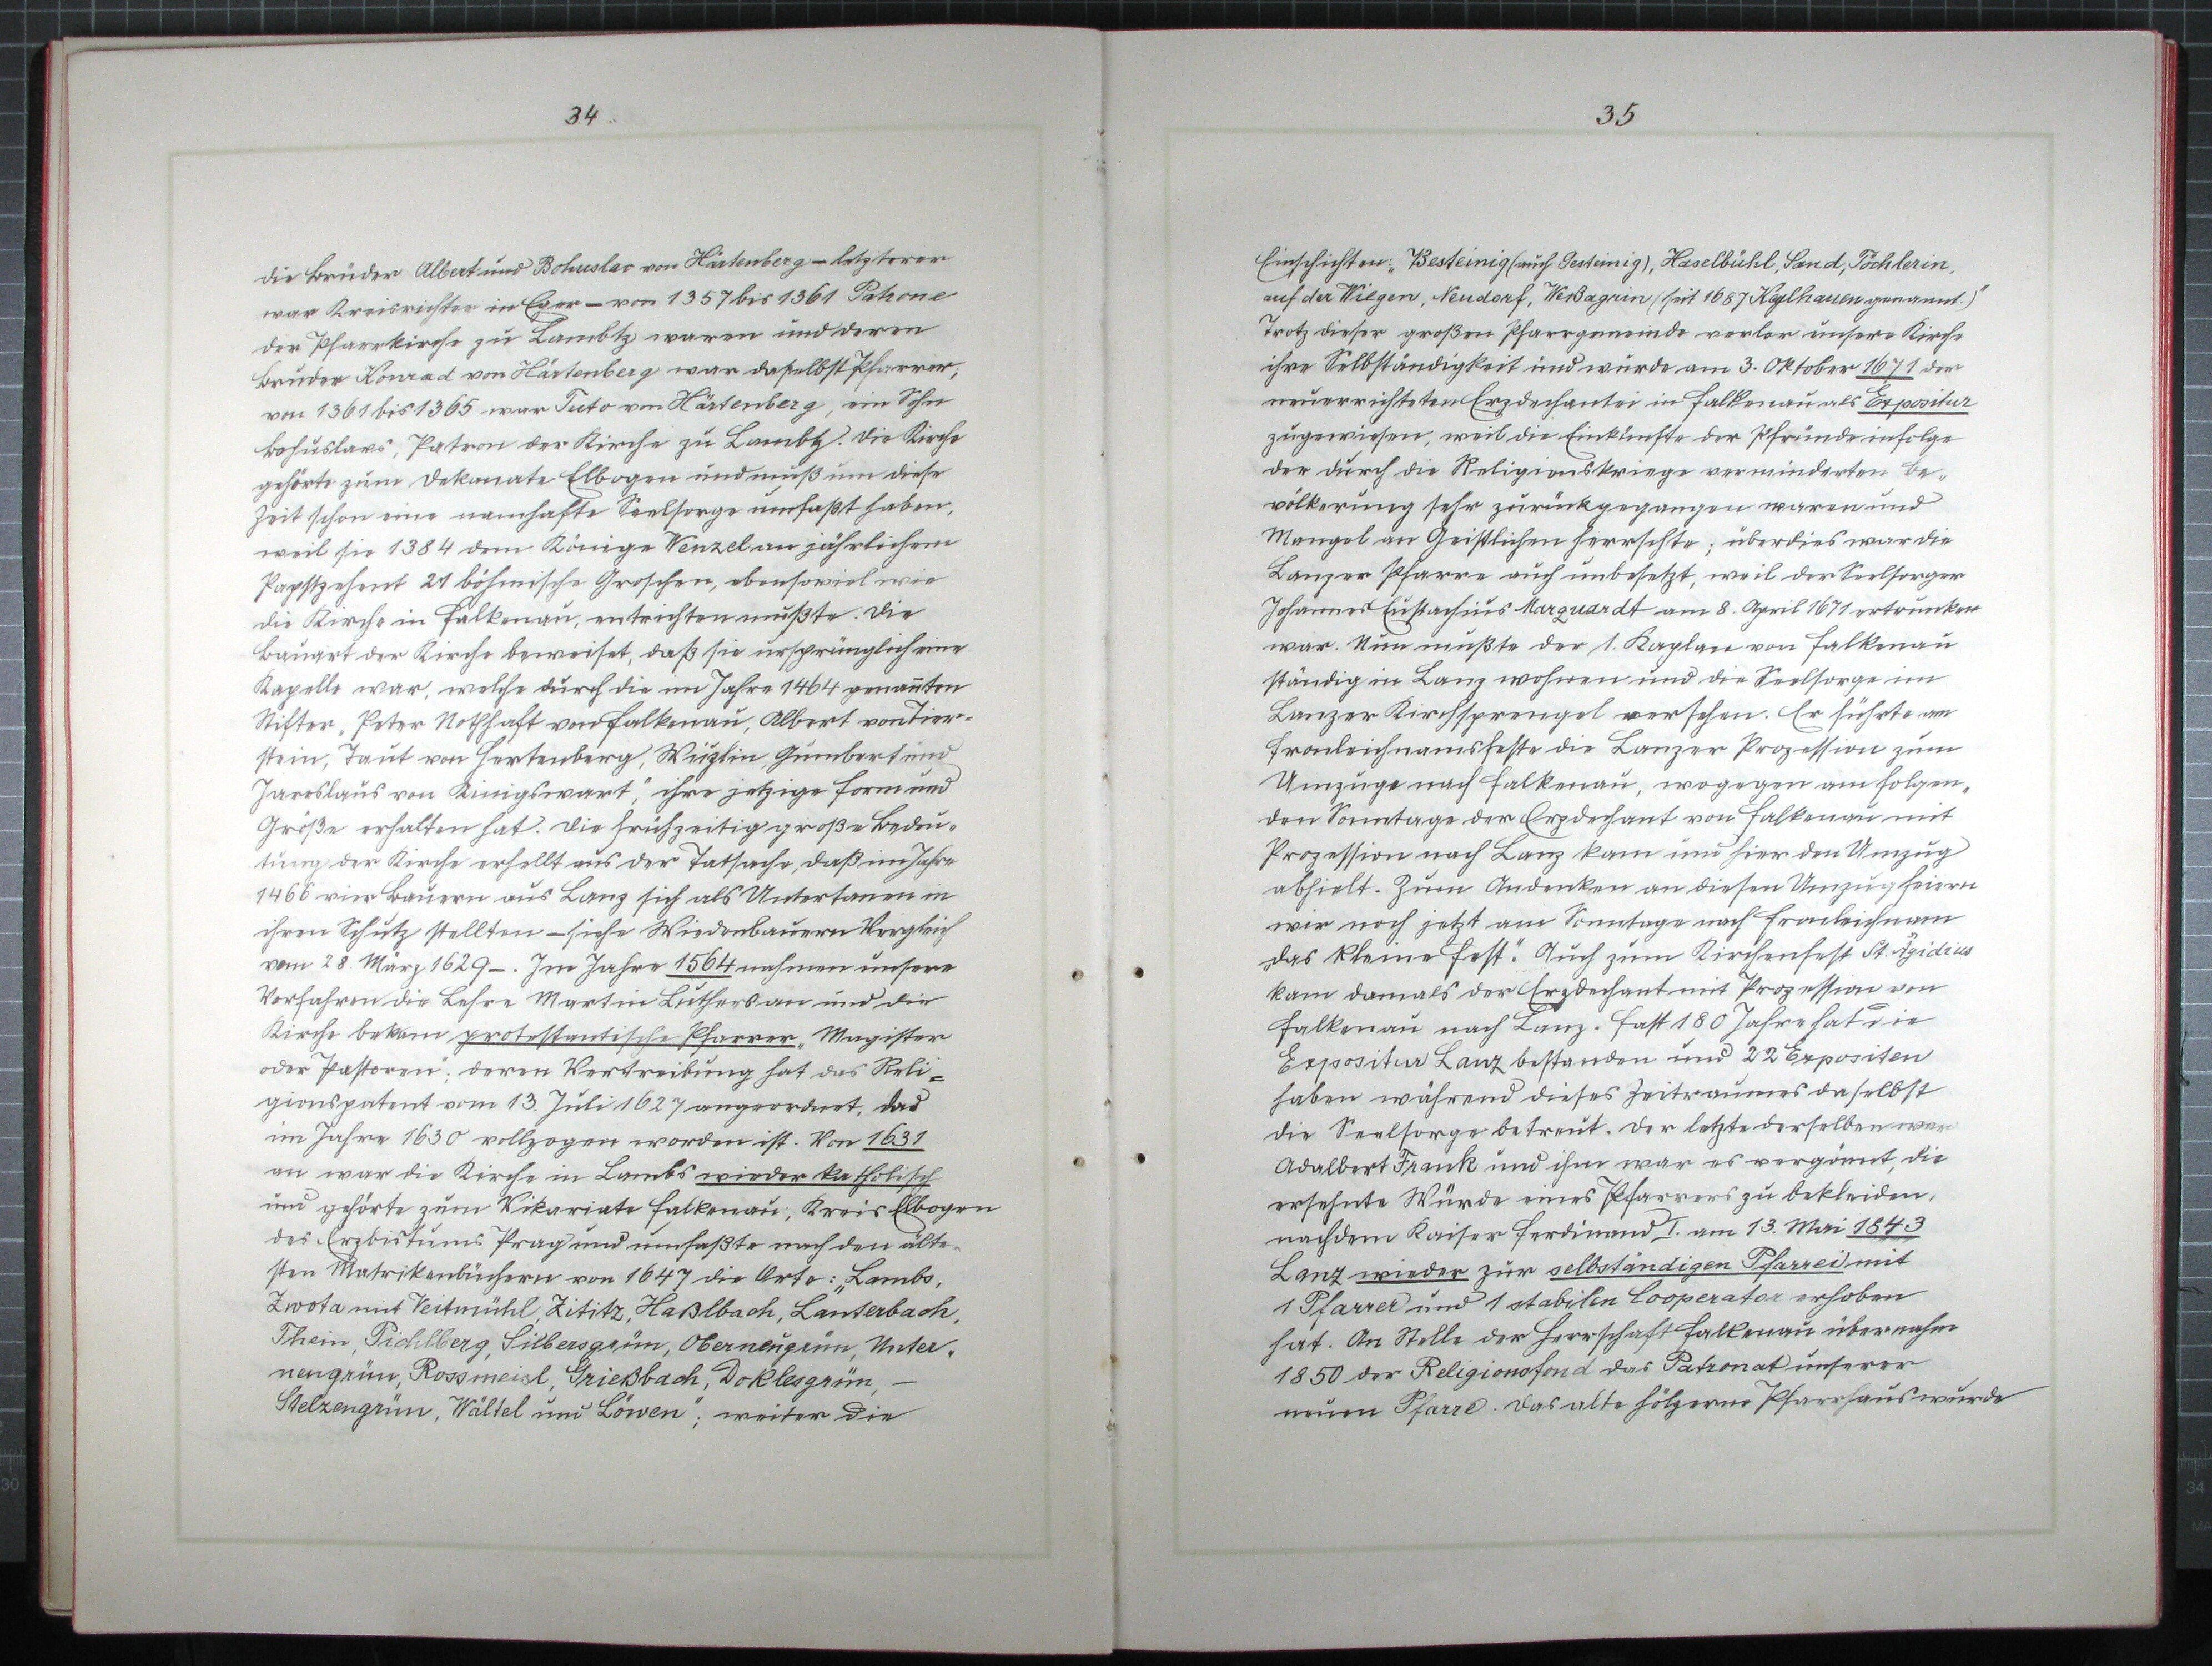 34
die Brüder Albert und Bohuslav von Härtenberg – letzterer
war Kreisrichter in Eger – von 1357 bis 1361 Patrone
der Pfarrkirche zu Lambtz waren und deren
Bruder Konrad von Härtenberg war daselbst Pfarrer;
von 1361 bis 1365 war Tuto von Härtenberg, ein Sohn
Bohuslavs, Patron der Kirche zu Lambtz. Die Kirche
gehörte zum Dekanate Elbogen und muß um diese
Zeit schon eine namhafte Seelsorge umfaßt haben,
weil sie 1384 dem Könige Wenzel an jährlichem
Papstzehent 21 böhmische Groschen, ebensoviel wie
die Kirche in Falkenau, entrichten mußte. Die
Bauart der Kirche beweiset, daß sie ursprünglich eine
Kapelle war, welche durch die im Jahre 1464 genannten
Stifter „Peter Nothhaft von Falkenau, Albert von Tier-
stein, Taut von Hertenberg, Wüzlin, Gumbert und
Jaroslaus von Königswart", ihre jetzige Form und
Größe erhalten hat. Die frühzeitig große Bedeu-
tung der Kirche erhellt aus der Tatsache, daß im Jahre
1466 vier Bauern aus Lanz sich als Untertanen in
ihren Schutz stellten – siehe Wiedenbauern Vergleich
vom 28. März 1629 –. Im Jahre 1564 nahmen unsere
Vorfahren die Lehre Martin Luthers an und die
Kirche bekam protestantische Pfarrer „Magister
oder Pastoren"; deren Vertreibung hat das Reli=
gionspatent vom 13. Juli 1627 angeordnet, das
im Jahre 1630 vollzogen worden ist. Von 1631
an war die Kirche in Lambs wieder katholisch
und gehörte zum Vikariate Falkenau, Kreis Elbogen
des Erzbistums Prag und umfaßte nach den älte-
sten Matrikenbüchern von 1647 die Orte: „Lambs,
Zwota mit Veitmühl, Zititz, Haßlbach, Lauterbach,
Thein, Pichlberg, Silbersgrün, Oberneugrün, Unter-
neugrün, Rossmeisl, Grießbach, Doklesgrün, –
Stelzengrün, Wältel und Löwen"; weiter die
35
Einschichten: „Besteinig (auch Gesteinig), Haselbühl, Sand, Töchlerin,
auf der Wiegen, Neudorf, Weßagrün (seit 1687 Kozlhauen genannt.)"
Trotz dieser großen Pfarrgemeinde verlor unsere Kirche
ihre Selbständigkeit und wurde am 3. Oktober 1671 der
neuerrichteten Erzdechantei in Falkenau als Expositur
zugewiesen, weil die Einkünfte der Pfründe infolge
der durch die Religionskriege verminderten Be-
völkerung sehr zurückgegangen waren und
Mangel an Geistlichen herrschte; überdies war die
Lanzer Pfarre auch unbesetzt, weil der Seelsorger
Johannes Eustachius Marquardt am 8. April 1671 ertrunken
war. Nun mußte der 1. Kaplan von Falkenau
ständig in Lanz wohnen und die Seelsorge im
Lanzer Kirchsprengel versehen. Er führte am
Fronleichnamsfeste die Lanzer Prozession zum
Umzuge nach Falkenau, wogegen am folgen-
den Sonntage der Erzdechant von Falkenau mit
Prozession nach Lanz kam und hier den Umzug
abhielt. Zum Andenken an diesen Umzug feiern
wir noch jetzt am Sonntage nach Fronleichnam
„das kleine Fest". Auch zum Kirchenfest St. Ägidius
kam damals der Erzdechant mit Prozession von
Falkenau nach Lanz. Fast 180 Jahre hat die
Expositur Lanz bestanden und 22 Expositen
haben während dieses Zeitraumes daselbst
die Seelsorge betreut. Der letzte derselben war
Adalbert Frank und ihm war es vergönnt, die
ersehnte Würde eines Pfarrers zu bekleiden,
nachdem Kaiser Ferdinand I. am 13. Mai 1843
Lanz wieder zur selbständigen Pfarrei mit
1 Pfarrer und 1 stabilen Cooperator erhoben
hat. An Stelle der Herrschaft Falkenau übernahm
1850 der Religionsfond das Patronat unserer
neuen Pfarre. Das alte hölzerne Pfarrhaus wurde